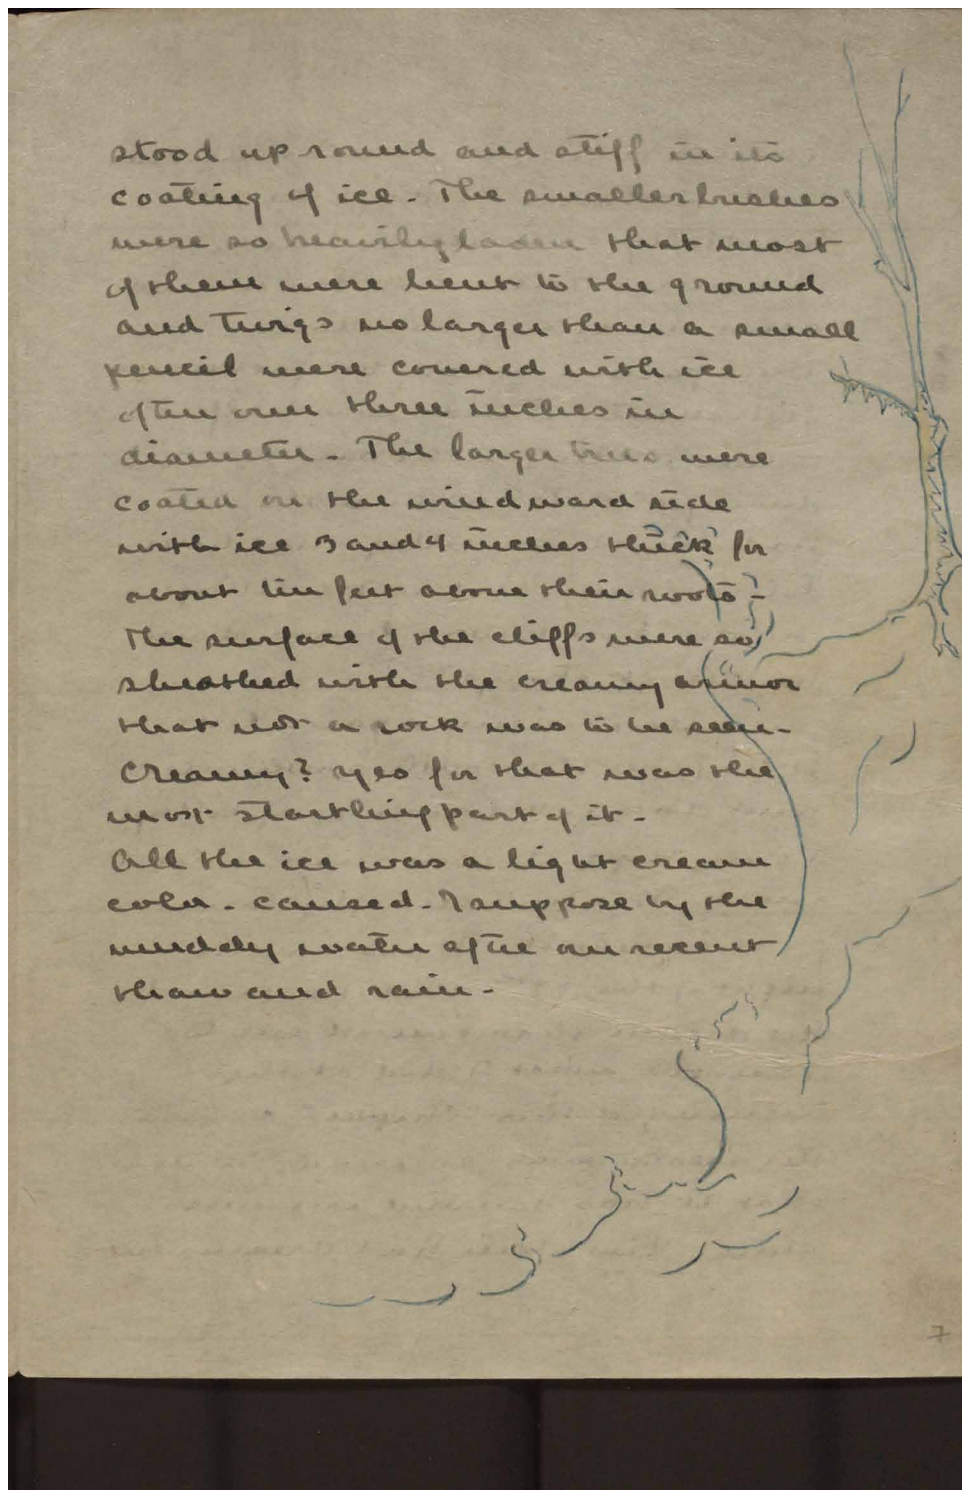 stood up round and stiff in its
coating of ice. The smaller bushes
were so heavily laden that most
of them were bent to the ground
and twigs no larger than a small
pencil were covered with ice
often over three inches in
diameter. The larger trees were
coated on the windward side
with ice 3 and 4 inches thick for
about ten feet above their roots -
The surface of the cliffs were so
sheathed with the creamy armor
that not a rock was to be seen -
Creamy? yes for that was the
most startling part of it -
All the ice was a light cream
color - caused - I suppose by the
muddy water after our recent
thaw and rain -
7